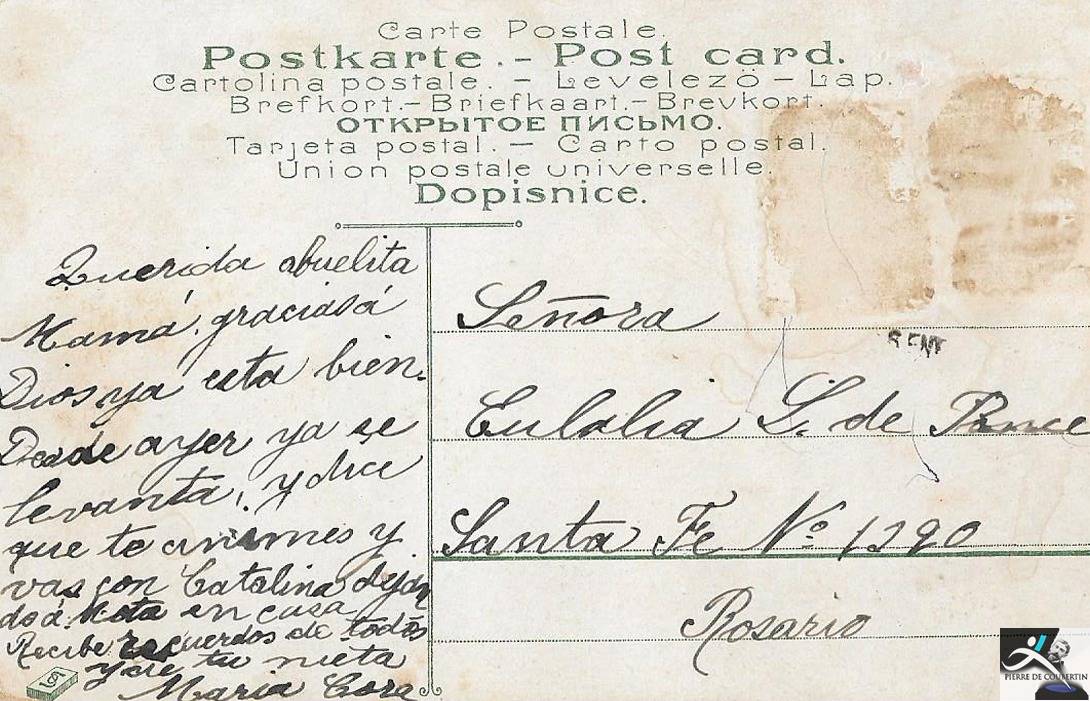 Carte Postale.
Postkarte.- Post card.
Cartolina postale. - Levelezö - Lap.
Brefkort.- Briefkaart.- Brevkort.
ОТКРЫТОЕ ПИСЬМО.
Tarjeta postal. - Carto postal.
Union postale universelle.
Dopisnice.
Querida abuelita
Mamá, graciasá
Dios ya esta bien.
Desde ayer ya se
levanta, y dice
que te animes y
vas con Catalina dejan
do á en casa
Recibe recuerdos de todos
y de tu nieta
Maria Cora
Señora
Eulalia L. de Ponce
Santa Fe Nº 1290
Rosario
PIERRE DE COUBERTIN